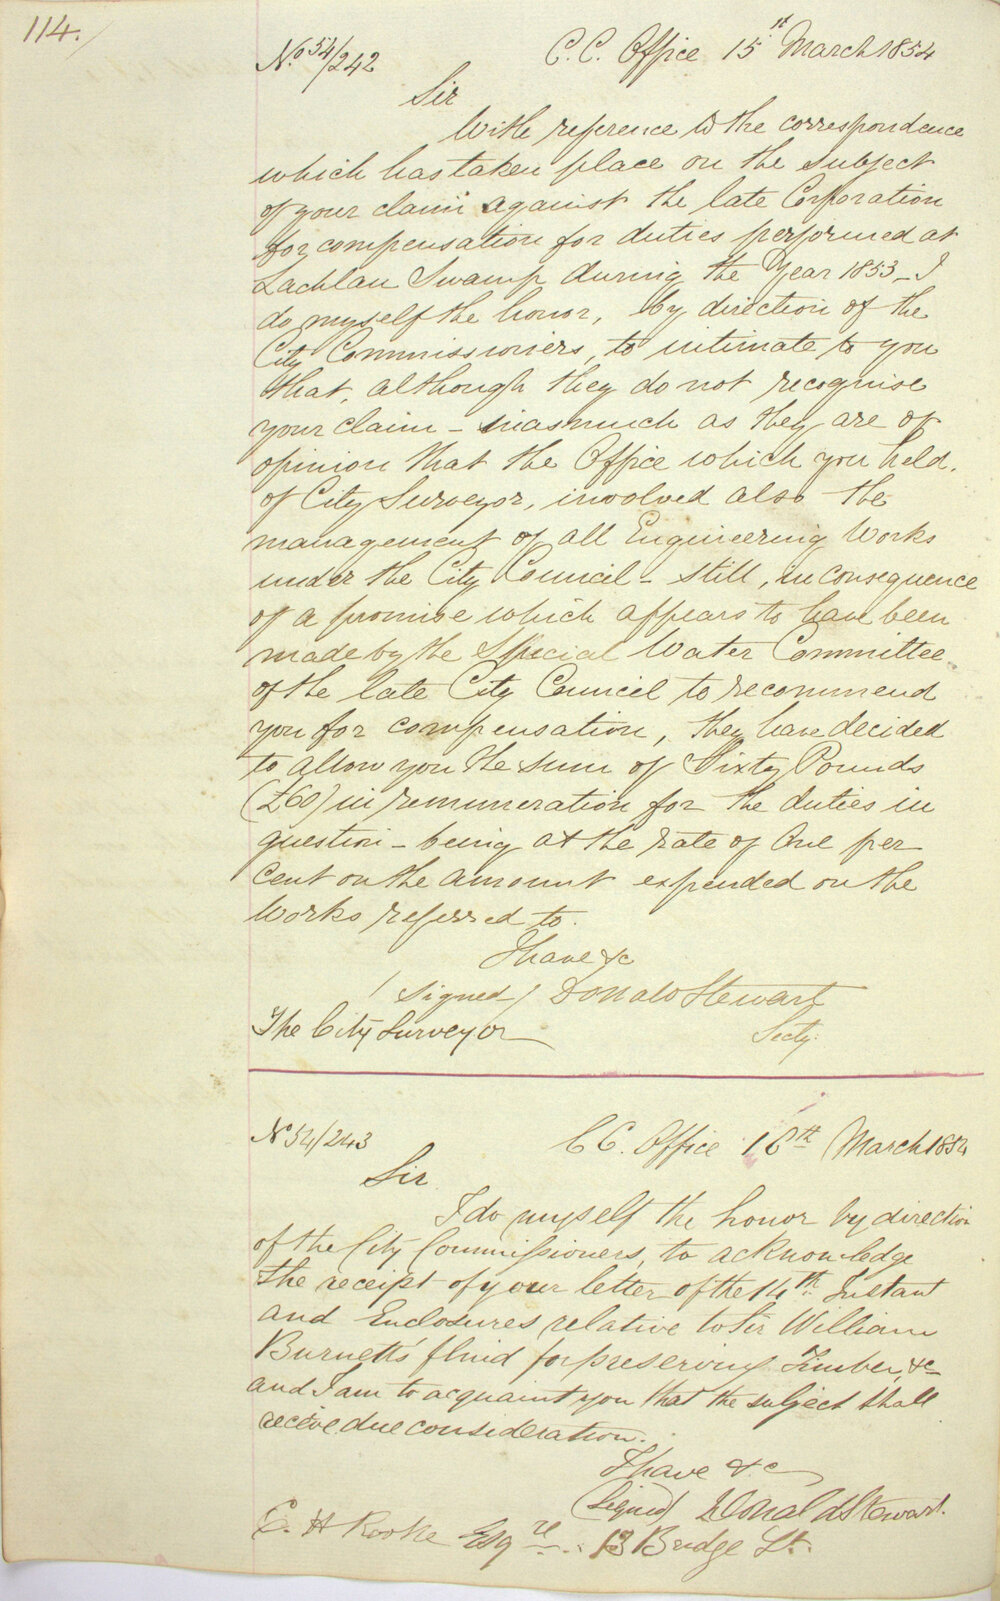 114.
No 54/242 C.C. Office 15th March 1854
Sir
With reference to the correspondence
which has taken place on the subject
of your claim against the late Corporation
for compensation for duties performed at
Lachlan Swamp during the Year 1853_ I
do myself the honor, by direction of the
City Commissioners, to intimate to you
that, although they do not recognise
your claim - inasmuch as they are of
opinion that the Office which you held,
of City Surveyor, involved also the
management of all Engineering Works
under the City Council - still, in consequence
of a promise which appears to have been
made by the Special Water Committee
of the late City Council to recommend
you for compensation, they have decided
to allow you the sum of Sixty Pounds
(£60) in remuneration for the duties in
question - being at the rate of One per
Cent on the amount expended on the
Works referred to.
I have &c
(signed) Donald Stewart
The City Surveyor Secty.
No 54/243 C C. Office 16th March 1854
Sir
I do myself the honor by direction
of the City Commissioners, to acknowledge
the receipt of your letter of the 14th Instant
and Enclosures relative to Sir William
Burnett's fluid for preserving Timber, &c
and I am to acquaint you that the subject shall
receive due consideration.
I have &c
(Signed) Donald Stewart.
E. H Rooke Esqre 13 Bridge St.